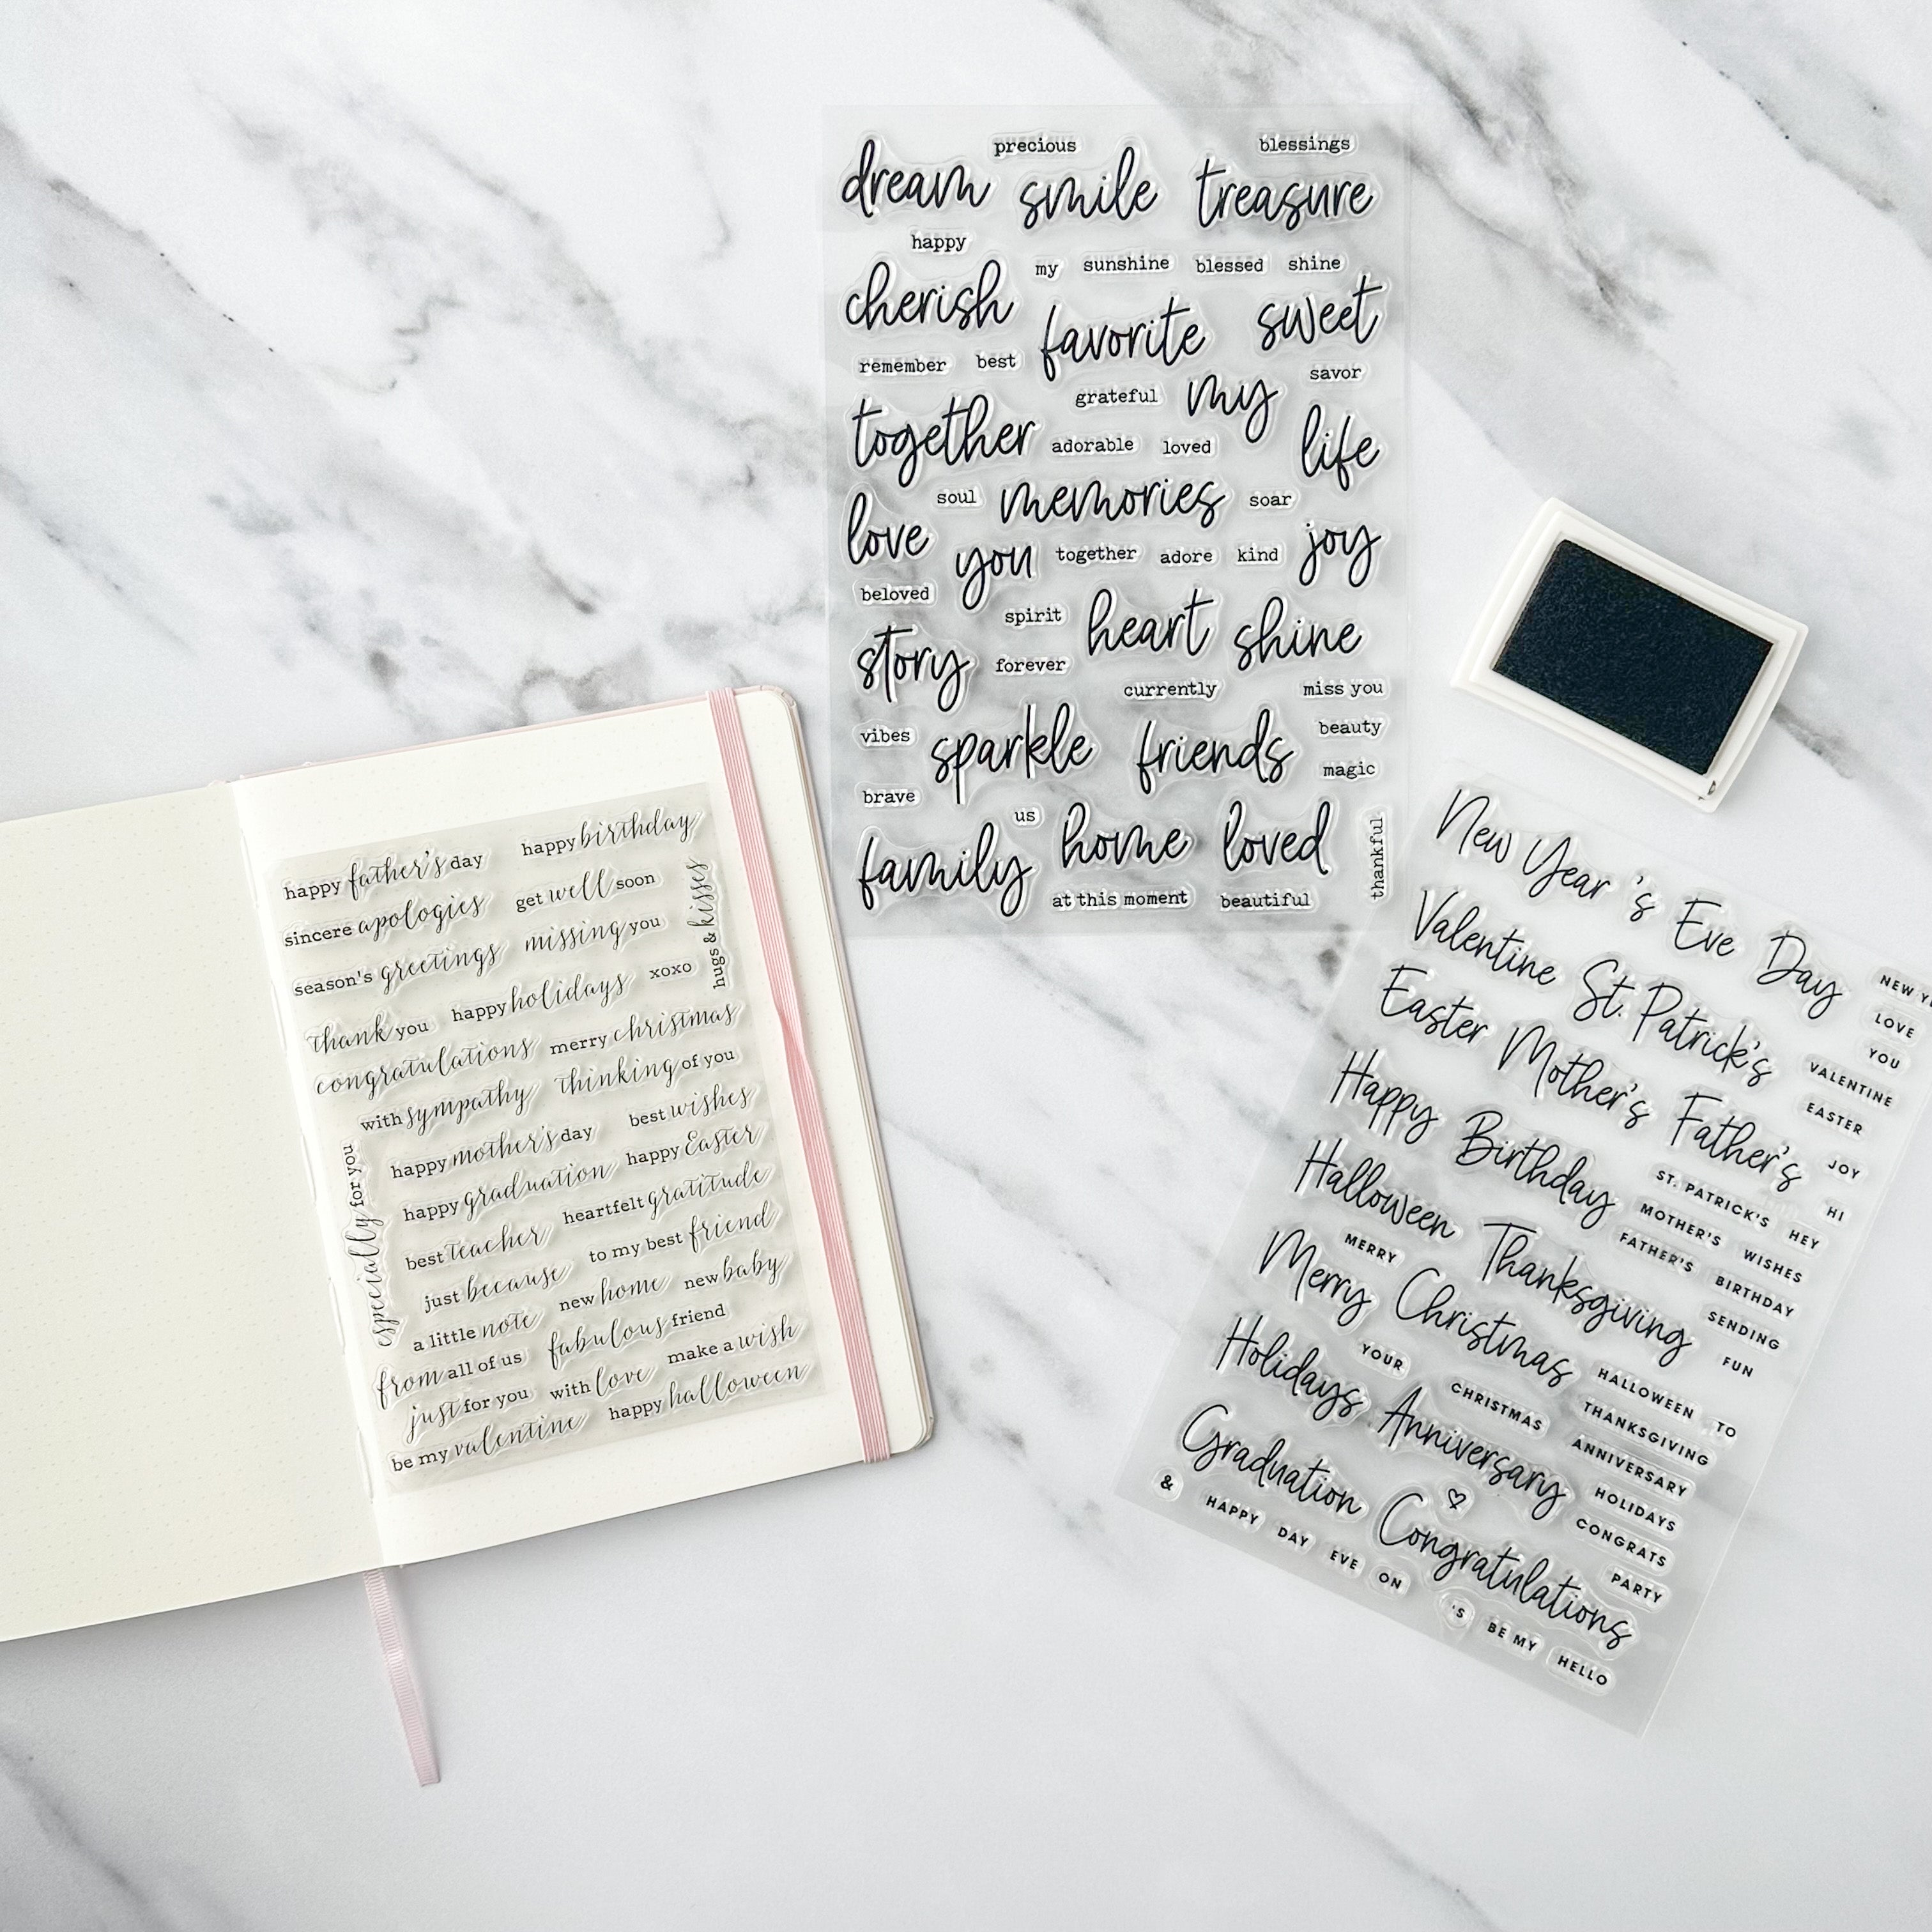 precious blessings
dream smile treasure
happy
my sunshine blessed shine
cherish favorite sweet
remember best savor
grateful my
together adorable loved life
soul memories soar
love you together adore kind joy
beloved
spirit heart shine
story forever
currently miss you
vibes sparkle friends beauty
magic
brave
us
family home loved thankful
at this moment beautiful
happy father's day happy birthday
sincere apologies get well soon
hugs & kisses
season's greetings missing you
thank you happy holidays xoxo
congratulations merry christmas
with sympathy thinking of you
happy mother's day best wishes
especially for you
happy graduation happy Easter
best teacher heartfelt gratitude
just because to my best friend
a little note new home new baby
from all of us fabulous friend
just for you with love make a wish
be my valentine happy halloween
New Year 's Eve Day
Valentine St. Patrick's
Easter Mother's Father's
Happy Birthday
Halloween Thanksgiving
MERRY
Merry Christmas
YOUR
Holidays Anniversary
CHRISTMAS
Graduation Congratulations
& HAPPY DAY EVE ON 'S BE MY HELLO
NEW
LOVE
YOU
VALENTINE
EASTER
JOY
ST. PATRICK'S HI
MOTHER'S HEY
FATHER'S WISHES
BIRTHDAY
SENDING
FUN
HALLOWEEN TO
THANKSGIVING
ANNIVERSARY
HOLIDAYS
CONGRATS
PARTY